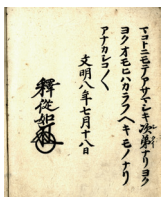 マコトニモテアサマシキ次第ナリヨク
ヨクオモヒハカラフヘキモノナリ
アナカシコ〱
文明八年七月十八日
釋從如